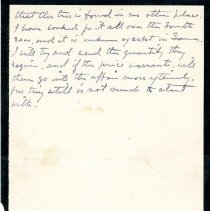 that the tree is found in no other place.
I have looked for it all over the South
Seas, and it is unknown except in Samoa.
I will try and send the quantity they
require, and if the price warrants, will
then go into the affair more extensively.
for they still is not much to start
with!